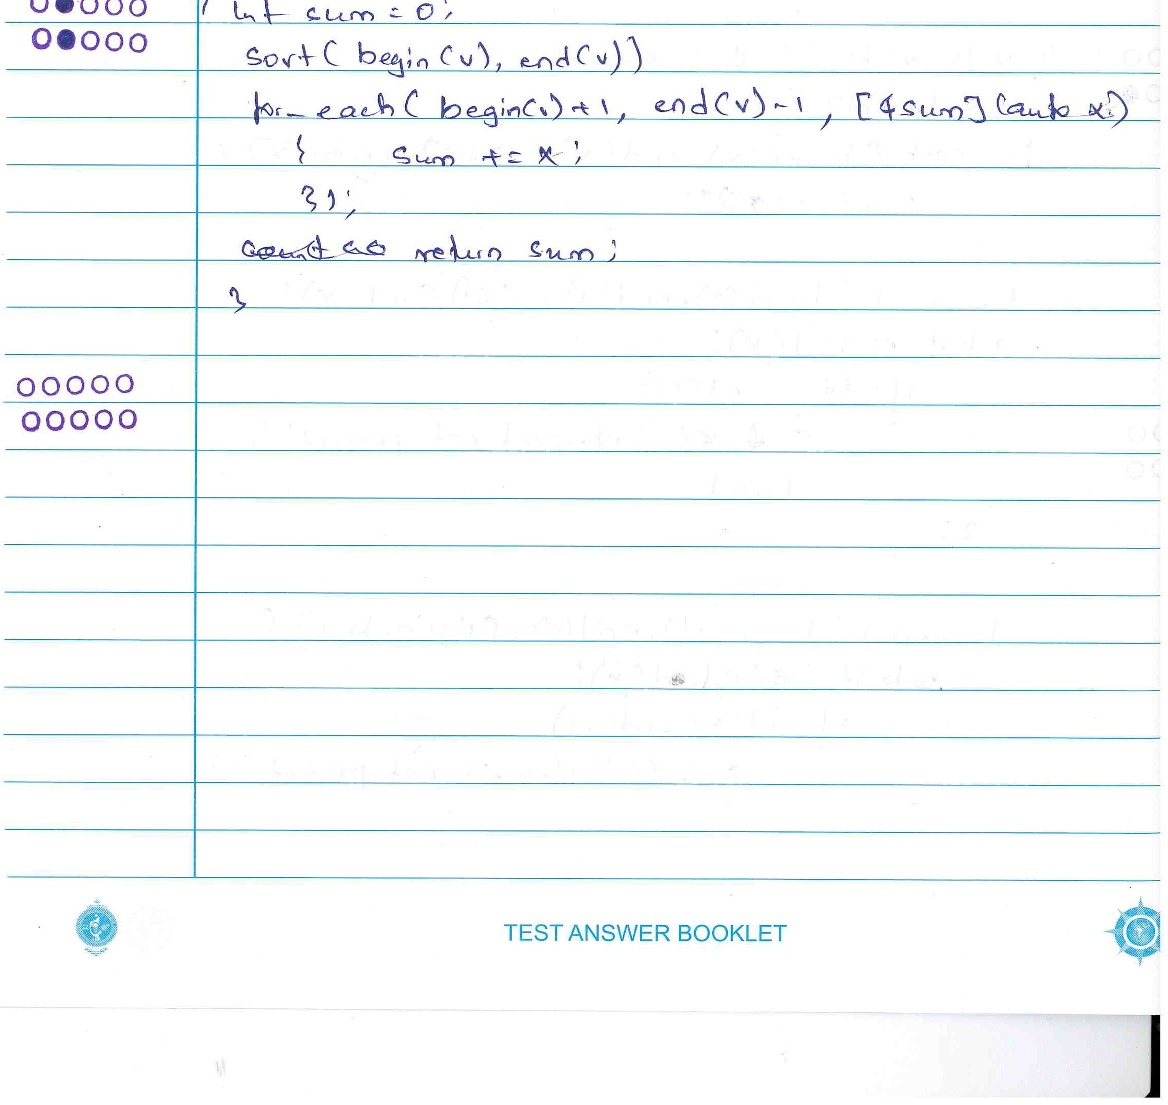 int sum = 0;
sort( begin(v), end(v))
for_each( begin(v)+1, end(v)-1, [&sum](auto x)
{ sum += x;
});
return sum;
}
TEST ANSWER BOOKLET